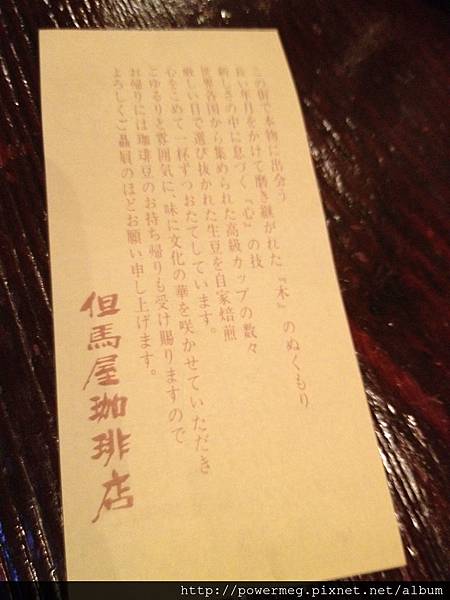 この街で本物に出会う
長い年月をかけて磨き継がれた『木』のぬくもり
新しさの中に息づく『心』の技
世界各国から集められた高級カップの数々
厳しい目で選び抜かれた生豆を自家焙煎
心をこめて一杯ずつおたてしています。
ごゆるりと雰囲気に、味に文化の華を咲かせていただき
お帰りには珈琲豆のお持ち帰りも受け賜りますので
よろしくご贔屓のほどお願い申し上げます。
但馬屋珈琲店
http://powermeg.pixnet.net/album